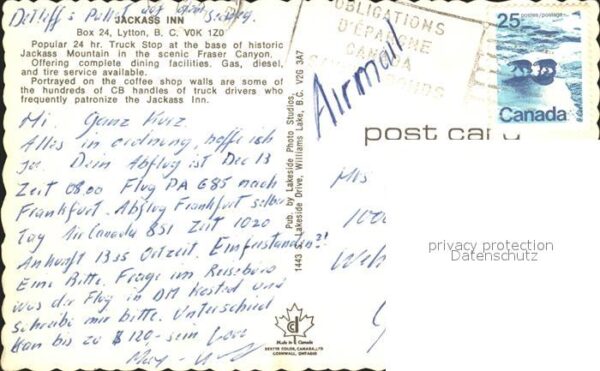 JACKASS INN
Box 24, Lytton, B. C. V0K 1Z0
Popular 24 hr. Truck Stop at the base of historic
Jackass Mountain in the scenic Fraser Canyon.
Offering complete dining facilities. Gas, diesel,
and tire service available.
Portrayed on the coffee shop walls are some of
the hundreds of CB handles of truck drivers who
frequently patronize the Jackass Inn.
Hi. Ganz kurz
Alles in ordnung, hoffe ich
Dein Abflug ist Dec 13
Zeit 08.00 Flug PA 685 nach
Frankfurt. Abflug Frankfurt selber
Tag Air Canada 851 Zeit 1020
Ankunft 1335 Ortzeit. Einferstanden?!
Eine Bitte. Frage im Reisebüro
was der Flug in DM kosted und
schreibe mir bitte. Unterschied
kan bis zu $ 120,- sein
Pub. by Lakeside Photo Studios,
1443 Lakeside Drive, Williams Lake, B.C. V2G 3A7
Made in Canada
CORNWALL, ONTARIO
OBLIGATIONS
D'ÉPARGNE
CANADA
Airmail
25
postes/postage
Canada
post card
Mrs
privacy protection
Datenschutz